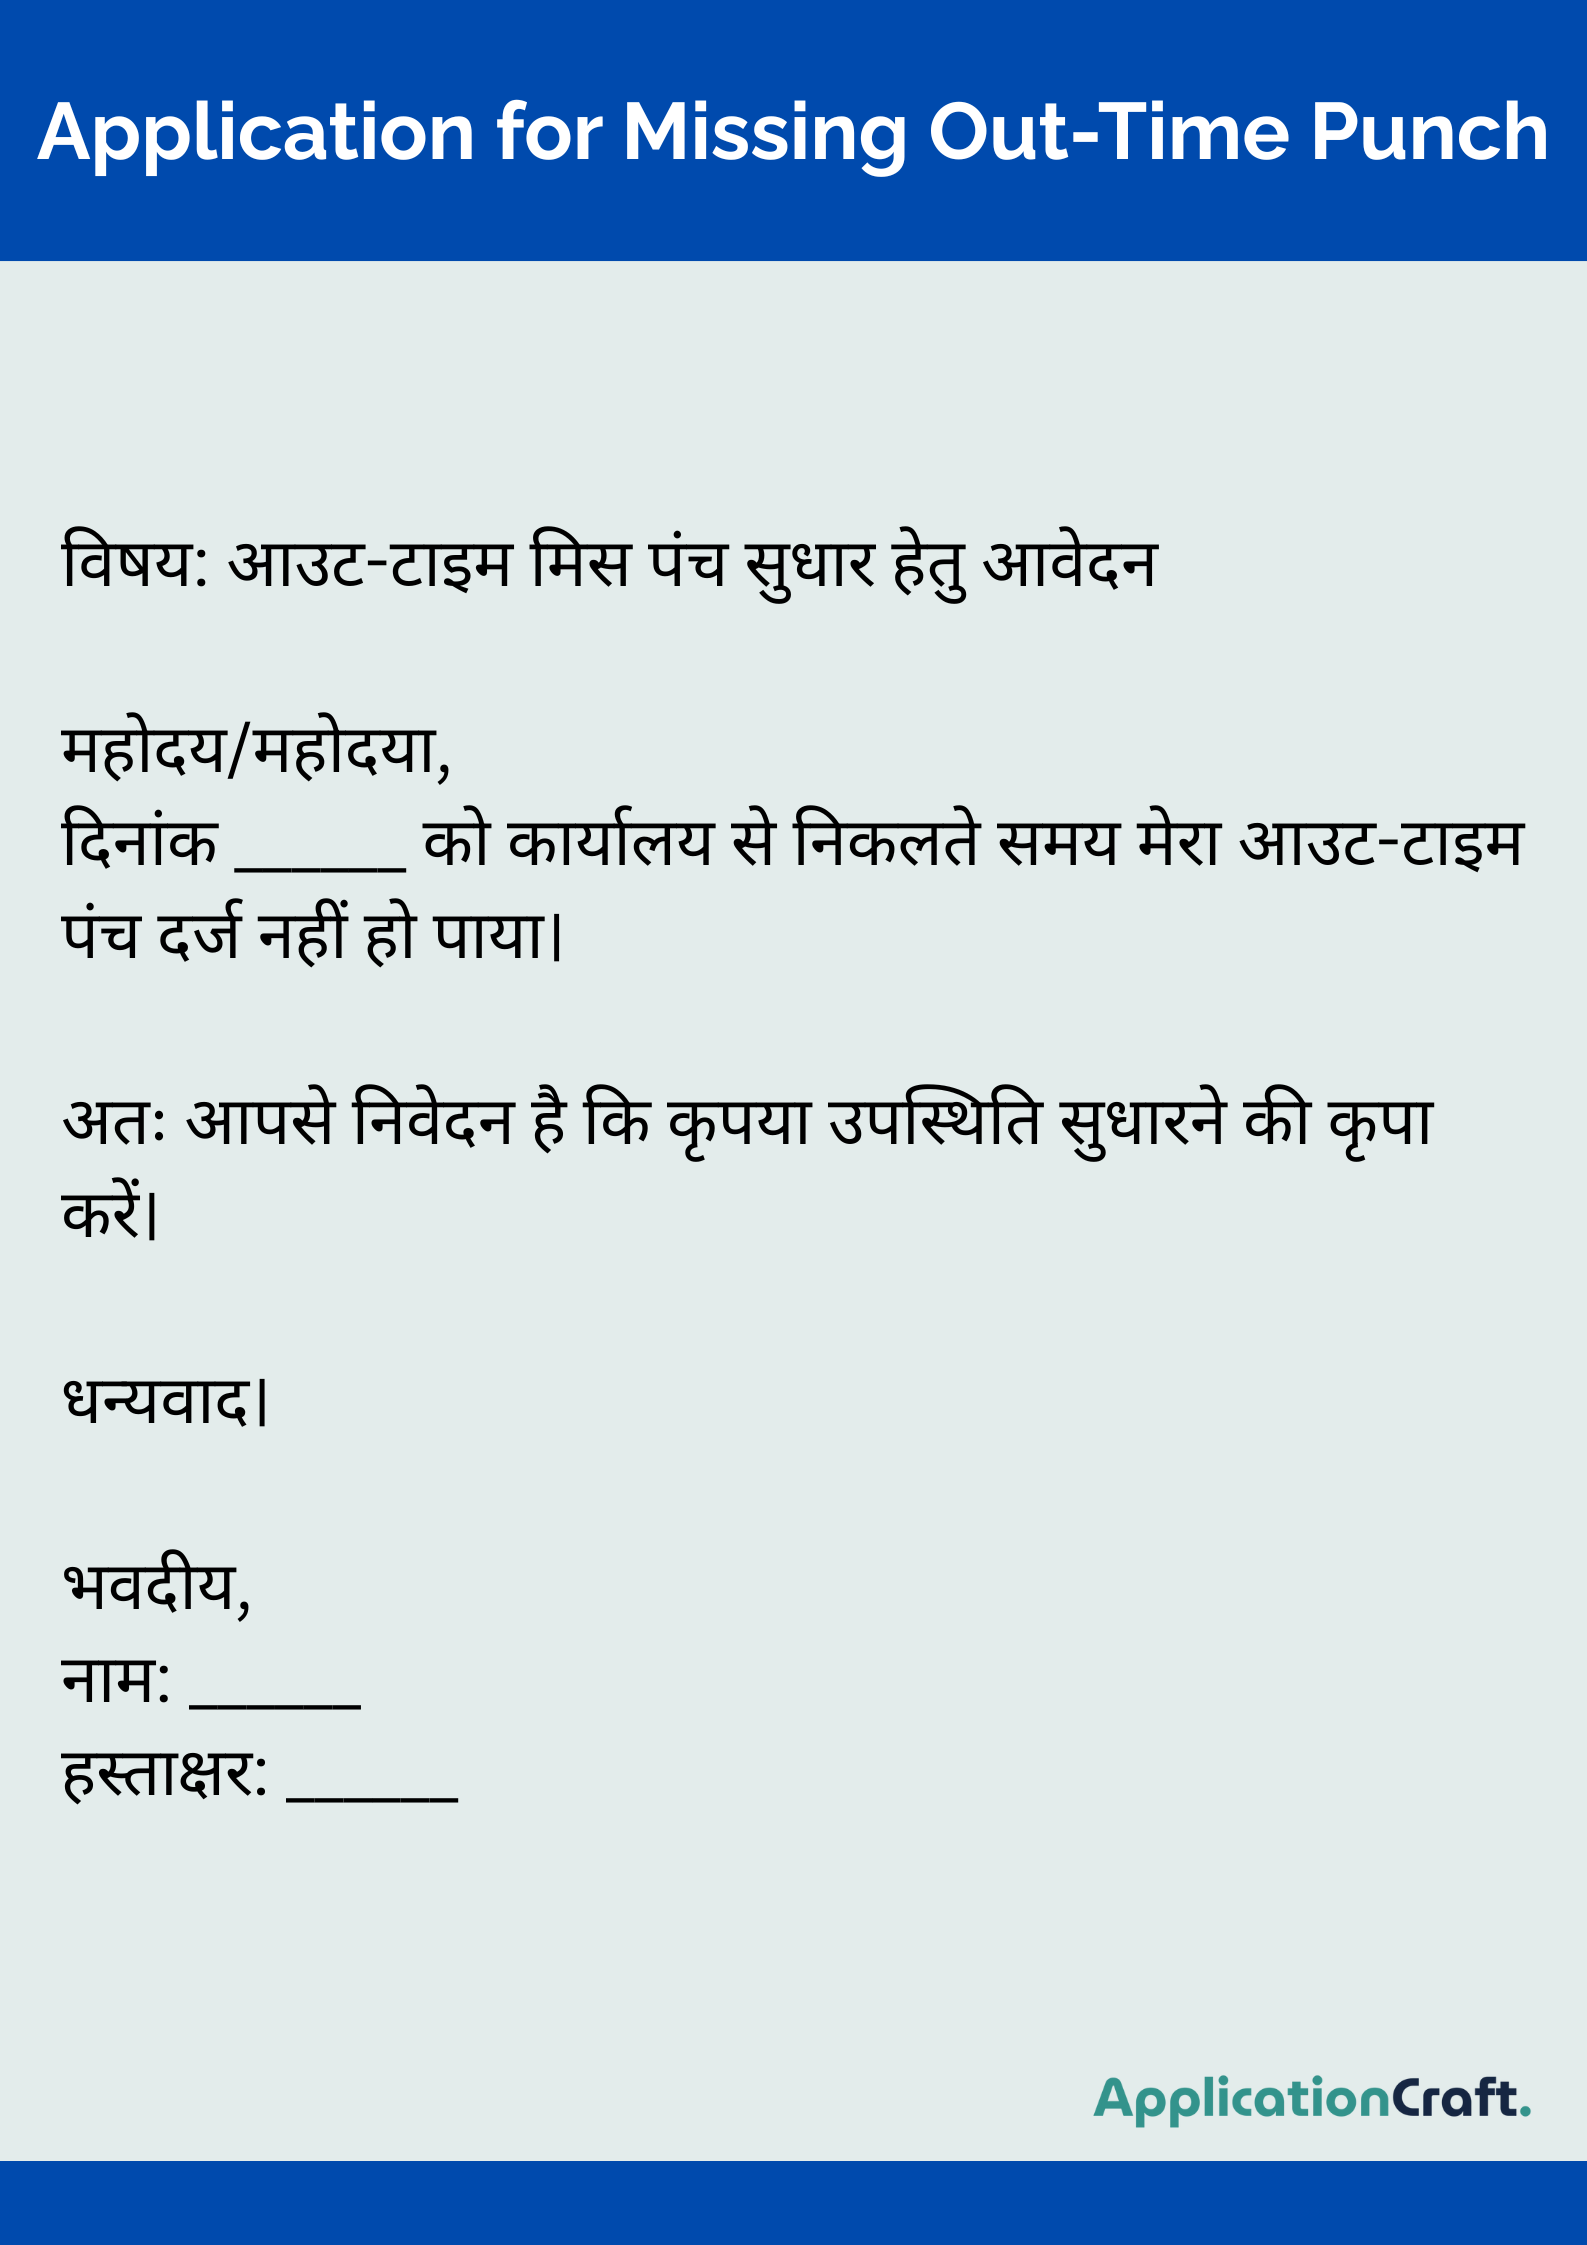 Application for Missing Out-Time Punch
विषय: आउट-टाइम मिस पंच सुधार हेतु आवेदन
महोदय/महोदया,
दिनांक ______ को कार्यालय से निकलते समय मेरा आउट-टाइम
पंच दर्ज नहीं हो पाया।
अतः आपसे निवेदन है कि कृपया उपस्थिति सुधारने की कृपा
करें।
धन्यवाद।
भवदीय,
नाम: ______
हस्ताक्षर: ______
ApplicationCraft.